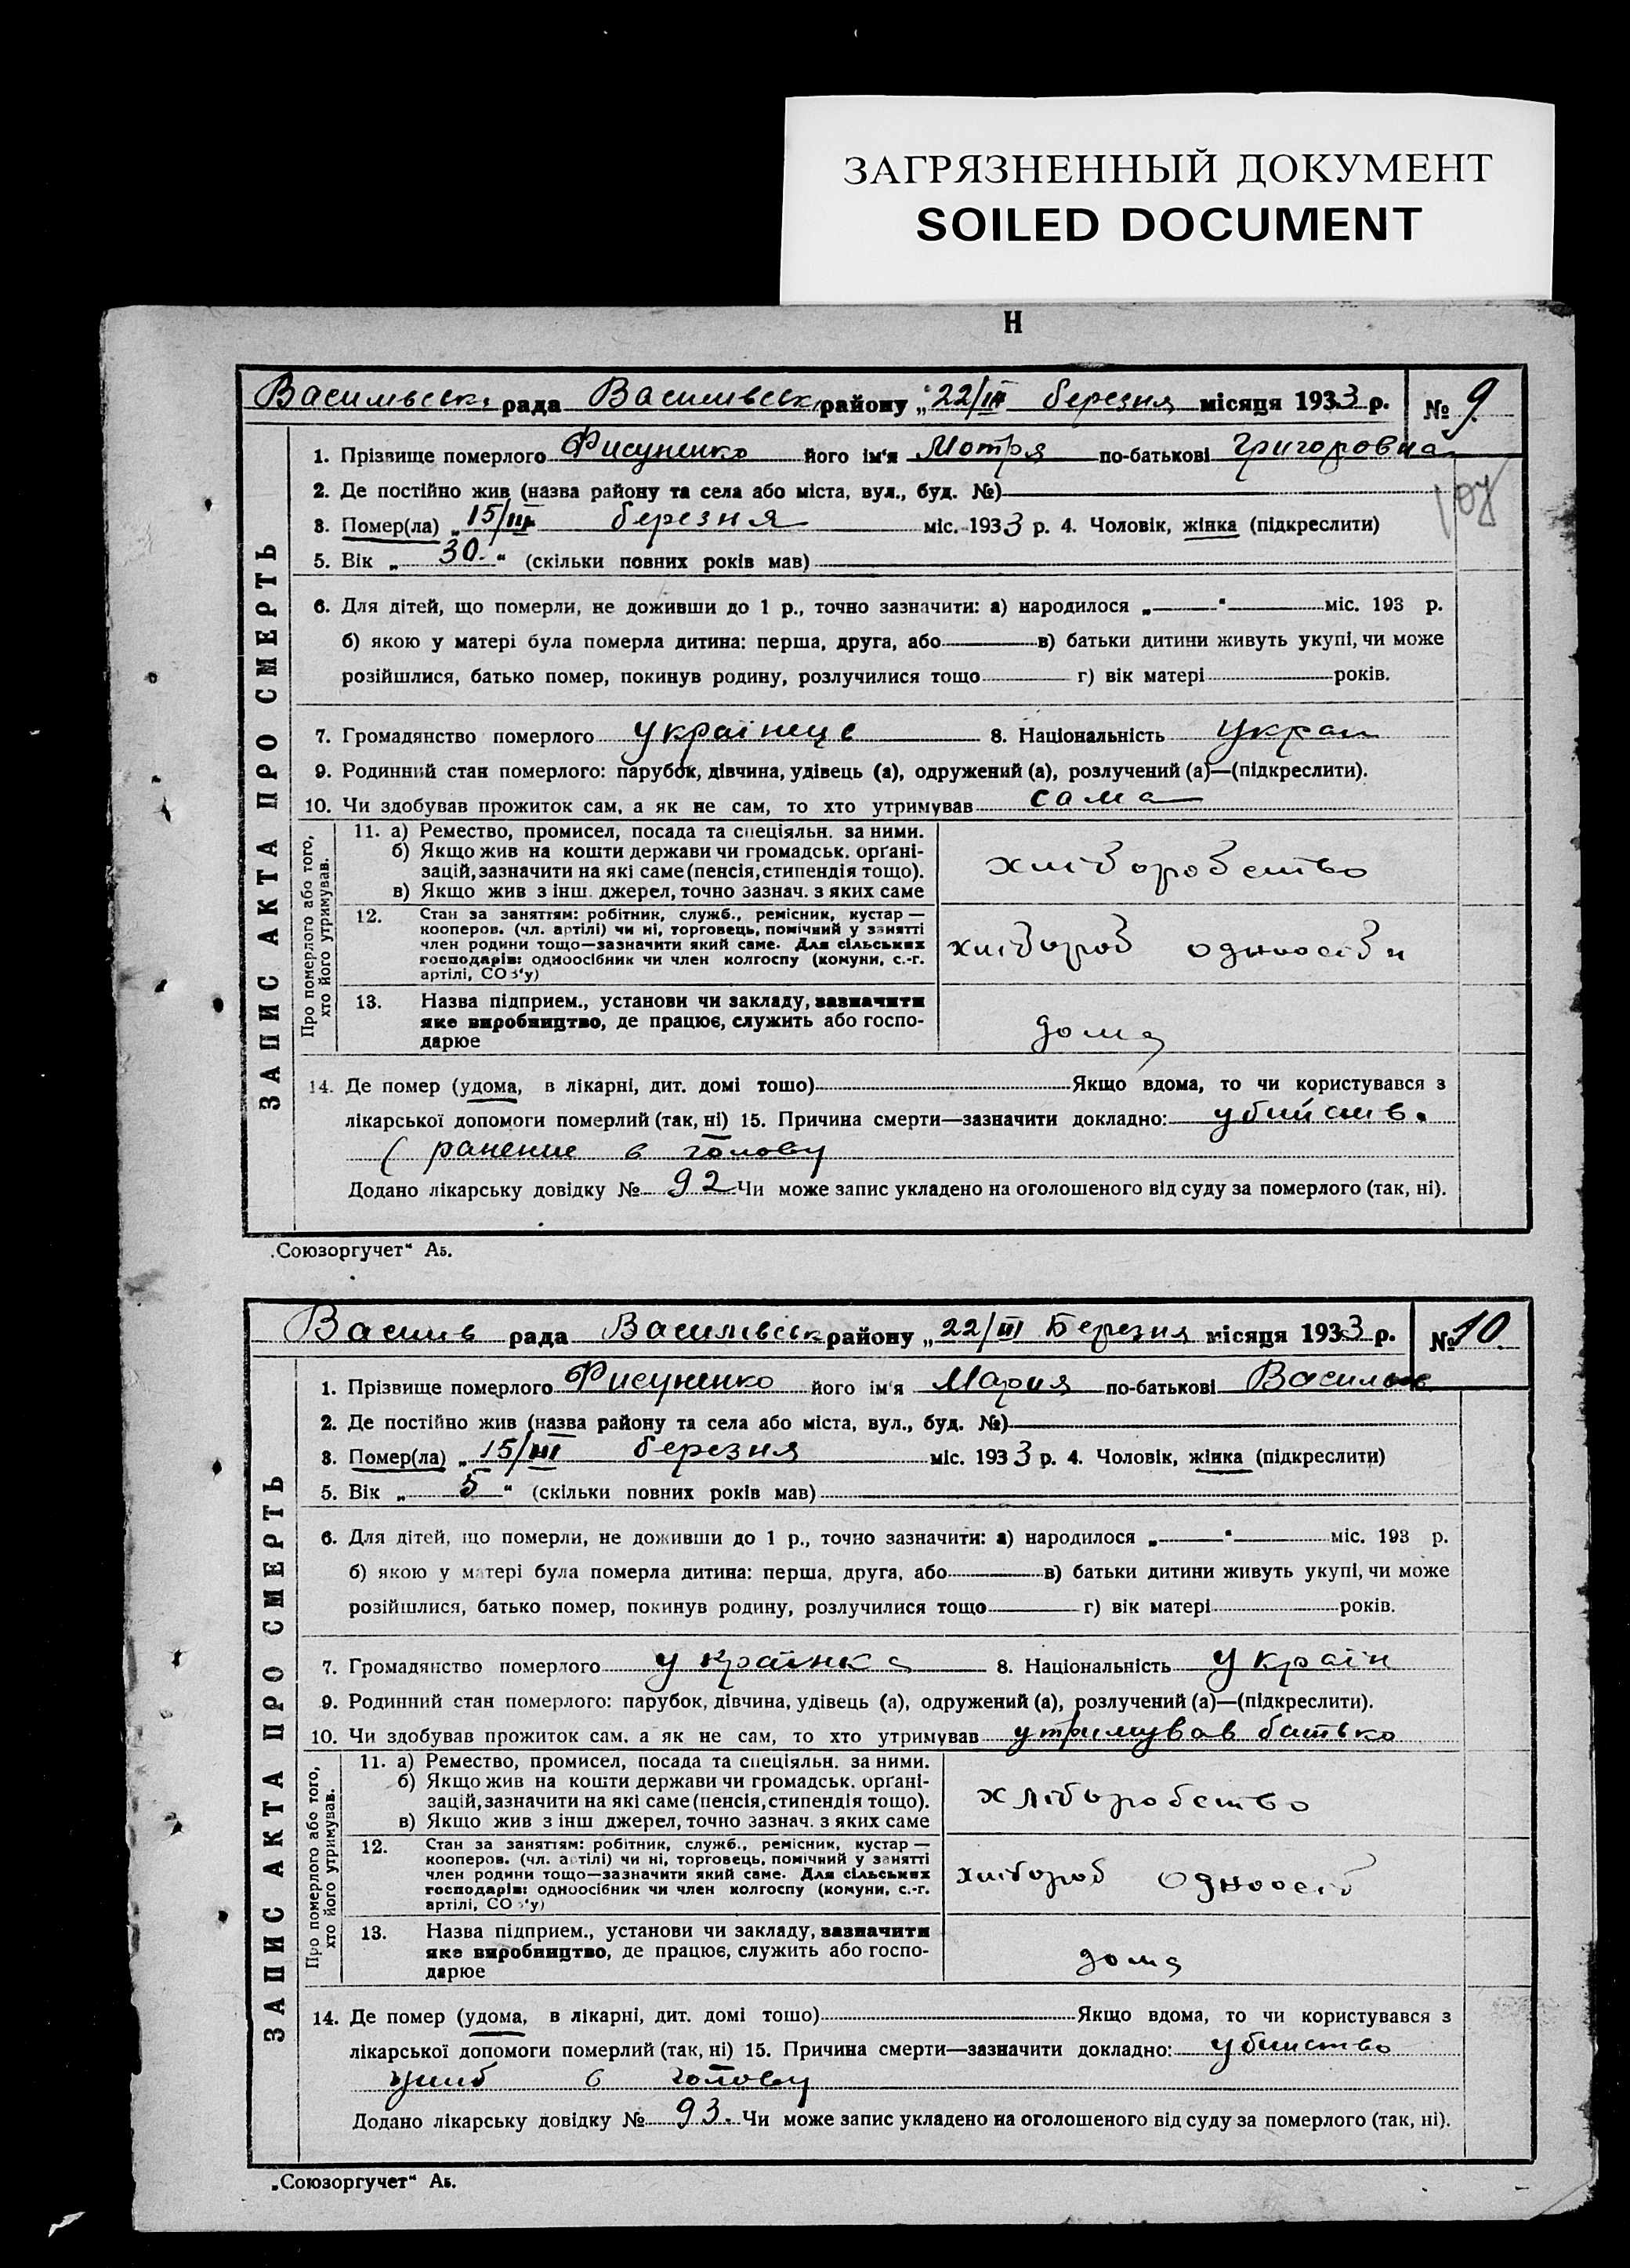 ЗАГРЯЗНЕННЫЙ ДОКУМЕНТ
SOILED DOCUMENT
Н
Васильевск. рада Васильвськ району „22/III березня місяця 1933 р. № 9.
ЗАПИС АКТА ПРО СМЕРТЬ
1. Прізвище померлого Фисуненко його ім'я Мотря по-батькові Григоровна
2. Де постійно жив (назва району та села або міста, вул., буд. №)
107
3. Помер(ла) „15/III березня міс. 1933 р. 4. Чоловік, жінка (підкреслити)
5. Вік „ 30. “ (скільки повних років мав)
6. Для дітей, що померли, не доживши до 1 р., точно зазначити: а) народилося „ “ міс. 193 р.
б) якою у матері була померла дитина: перша, друга, або в) батьки дитини живуть укупі, чи може
розійшлися, батько помер, покинув родину, розлучилися тощо г) вік матері років.
7. Громадянство померлого 8. Національність Украи
9. Родинний стан померлого: парубок, дівчина, удівець (а), одружений (а), розлучений (а)—(підкреслити).
10. Чи здобував прожиток сам, а як не сам, то хто утримував сама
Про померлого або того,
хто його утримував.
11. а) Ремество, промисел, посада та спеціяльн. за ними.
б) Якщо жив на кошти держави чи громадськ. орґані-
зацій, зазначити на які саме (пенсія, стипендія тощо).
в) Якщо жив з інш. джерел, точно зазнач. з яких саме
хліборобство
12. Стан за заняттям: робітник, служб., ремісник, кустар —
кооперов. (чл. артілі) чи ні, торговець, помічний у занятті
член родини тощо—зазначити який саме. Для сільських
господарів: одноосібник чи член колгоспу (комуни, с.-г.
артілі, СОЗ'у)
хлібороб одноосібн
13. Назва підприєм., установи чи закладу, зазначити
яке виробництво, де працює, служить або госпо-
дарює
дома
14. Де помер (удома, в лікарні, дит. домі тощо) Якщо вдома, то чи користувався з
лікарської допомоги померлий (так, ні) 15. Причина смерти—зазначити докладно: убийств.
( ранение в голову
Додано лікарську довідку № 92 Чи може запис укладено на оголошеного від суду за померлого (так, ні).
„Союзоргучет“ Аб.
Васил в рада Василівськ району „22/III Березня місяця 1933 р. № 10.
ЗАПИС АКТА ПРО СМЕРТЬ
1. Прізвище померлого Фисуненко його ім'я Мария по-батькові Василье
2. Де постійно жив (назва району та села або міста, вул., буд. №)
3. Помер(ла) „15/III березня міс. 1933 р. 4. Чоловік, жінка (підкреслити)
5. Вік „ 5 “ (скільки повних років мав)
6. Для дітей, що померли, не доживши до 1 р., точно зазначити: а) народилося „ “ міс. 193 р.
б) якою у матері була померла дитина: перша, друга, або в) батьки дитини живуть укупі, чи може
розійшлися, батько помер, покинув родину, розлучилися тощо г) вік матері років.
7. Громадянство померлого українка 8. Національність україн
9. Родинний стан померлого: парубок, дівчина, удівець (а), одружений (а), розлучений (а)—(підкреслити).
10. Чи здобував прожиток сам, а як не сам, то хто утримував утримував батько
Про померлого або того,
хто його утримував.
11. а) Ремество, промисел, посада та спеціяльн. за ними.
б) Якщо жив на кошти держави чи громадськ. орґані-
зацій, зазначити на які саме (пенсія, стипендія тощо).
в) Якщо жив з інш джерел, точно зазнач. з яких саме
хліборобство
12. Стан за заняттям: робітник, служб., ремісник, кустар —
кооперов. (чл. артілі) чи ні, торговець, помічний у занятті
член родини тощо—зазначити який саме. Для сільських
господарів: одноосібник чи член колгоспу (комуни, с.-г.
артілі, СОЗ'у)
хлібороб одноосіб
13. Назва підприєм., установи чи закладу, зазначити
яке виробництво, де працює, служить або госпо-
дарює
дома
14. Де помер (удома, в лікарні, дит. домі тощо) Якщо вдома, то чи користувався з
лікарської допомоги померлий (так, ні) 15. Причина смерти—зазначити докладно: убийство
ушиб в голову
Додано лікарську довідку № 93. Чи може запис укладено на оголошеного від суду за померлого (так, ні).
„Союзоргучет“ Аб.